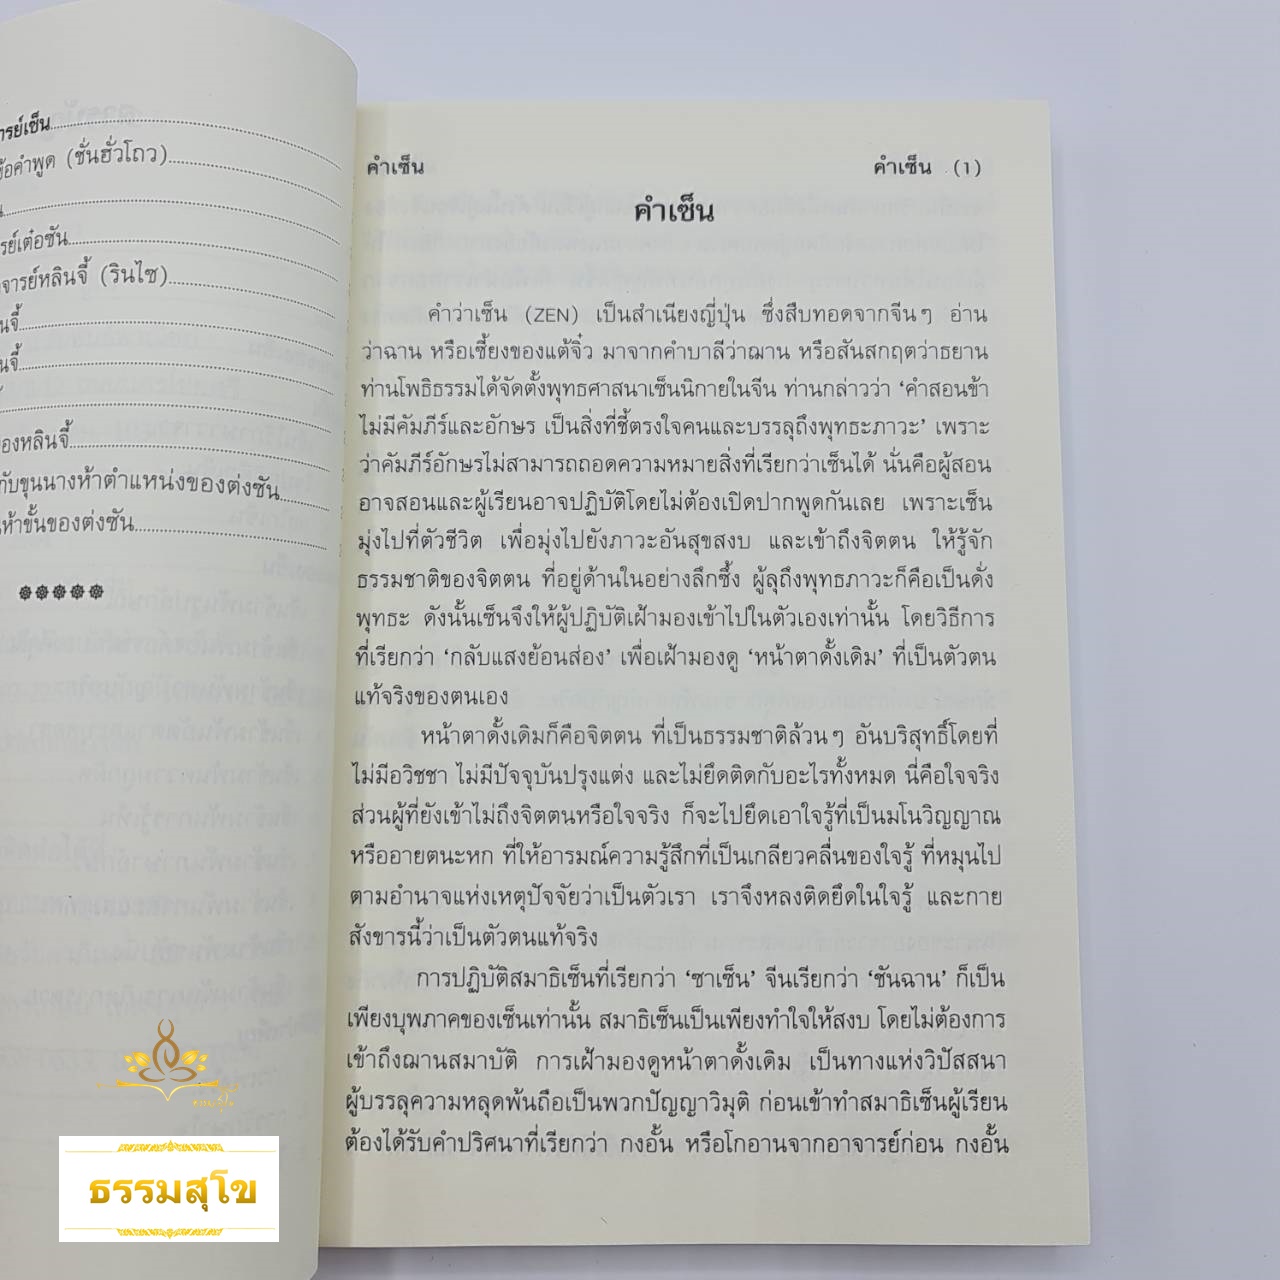 ารย์เซ็น
้อคำพูด (ชั่นฮั่วโถว)
น
รย์เต๋อซัน
าจารย์หลินจี้ (รินไซ)
นจี้
นจี้
องหลินจี้
กับขุนนางห้าตำแหน่งของต่งซัน
ห้าขั้นของต่งซัน
คำเซ็น
คำเซ็น (1)
คำเซ็น
คำว่าเซ็น (ZEN) เป็นสำเนียงญี่ปุ่น ซึ่งสืบทอดจากจีนๆ อ่าน
ว่าฉาน หรือเซี้ยงของแต้จิ๋ว มาจากคำบาลีว่าฌาน หรือสันสกฤตว่าธยาน
ท่านโพธิธรรมได้จัดตั้งพุทธศาสนาเซ็นนิกายในจีน ท่านกล่าวว่า ‘คำสอนข้า
ไม่มีคัมภีร์และอักษร เป็นสิ่งที่ชี้ตรงใจคนและบรรลุถึงพุทธะภาวะ’ เพราะ
ว่าคัมภีร์อักษรไม่สามารถถอดความหมายสิ่งที่เรียกว่าเซ็นได้ นั่นคือผู้สอน
อาจสอนและผู้เรียนอาจปฏิบัติโดยไม่ต้องเปิดปากพูดกันเลย เพราะเซ็น
มุ่งไปที่ตัวชีวิต เพื่อมุ่งไปยังภาวะอันสุขสงบ และเข้าถึงจิตตน ให้รู้จัก
ธรรมชาติของจิตตน ที่อยู่ด้านในอย่างลึกซึ้ง ผู้ลุถึงพุทธภาวะก็คือเป็นดั่ง
พุทธะ ดังนั้นเซ็นจึงให้ผู้ปฏิบัติเฝ้ามองเข้าไปในตัวเองเท่านั้น โดยวิธีการ
ที่เรียกว่า ‘กลับแสงย้อนส่อง’ เพื่อเฝ้ามองดู ‘หน้าตาดั้งเดิม’ ที่เป็นตัวตน
แท้จริงของตนเอง
หน้าตาดั้งเดิมก็คือจิตตน ที่เป็นธรรมชาติล้วนๆ อันบริสุทธิ์โดยที่
ไม่มีอวิชชา ไม่มีปัจจุบันปรุงแต่ง และไม่ยึดติดกับอะไรทั้งหมด นี่คือใจจริง
ส่วนผู้ที่ยังเข้าไม่ถึงจิตตนหรือใจจริง ก็จะไปยึดเอาใจรู้ที่เป็นมโนวิญญาณ
หรืออายตนะหก ที่ให้อารมณ์ความรู้สึกที่เป็นเกลียวคลื่นของใจรู้ ที่หมุนไป
ตามอำนาจแห่งเหตุปัจจัยว่าเป็นตัวเรา เราจึงหลงติดยึดในใจรู้ และกาย
สังขารนี้ว่าเป็นตัวตนแท้จริง
การปฏิบัติสมาธิเซ็นที่เรียกว่า ‘ซาเซ็น’ จีนเรียกว่า ‘ชันฉาน’ ก็เป็น
เพียงบุพภาคของเซ็นเท่านั้น สมาธิเซ็นเป็นเพียงทำใจให้สงบ โดยไม่ต้องการ
เข้าถึงฌานสมาบัติ การเฝ้ามองดูหน้าตาดั้งเดิม เป็นทางแห่งวิปัสสนา
ผู้บรรลุความหลุดพ้นถือเป็นพวกปัญญาวิมุติ ก่อนเข้าทำสมาธิเซ็นผู้เรียน
ต้องได้รับคำปริศนาที่เรียกว่า กงอั้น หรือโกอานจากอาจารย์ก่อน กงอั้น
ธรรมสุโข